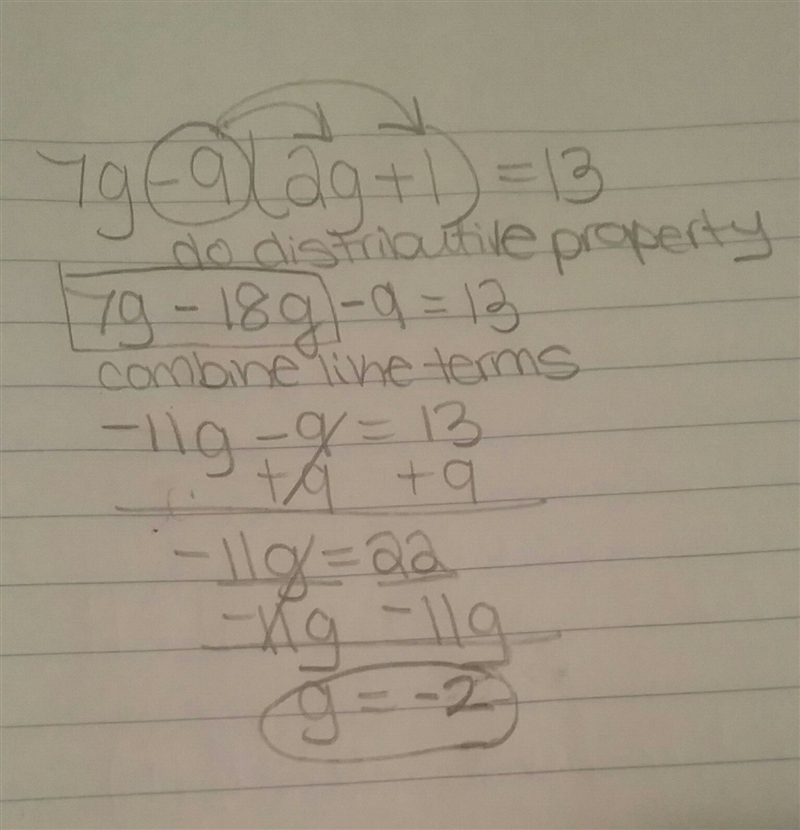 7g -9(2g+1) = 13
do distributive property
7g - 18g -9 = 13
combine line terms
-11g -9 = 13
+9 +9
-11g = 22
-11g -11g
g = -2